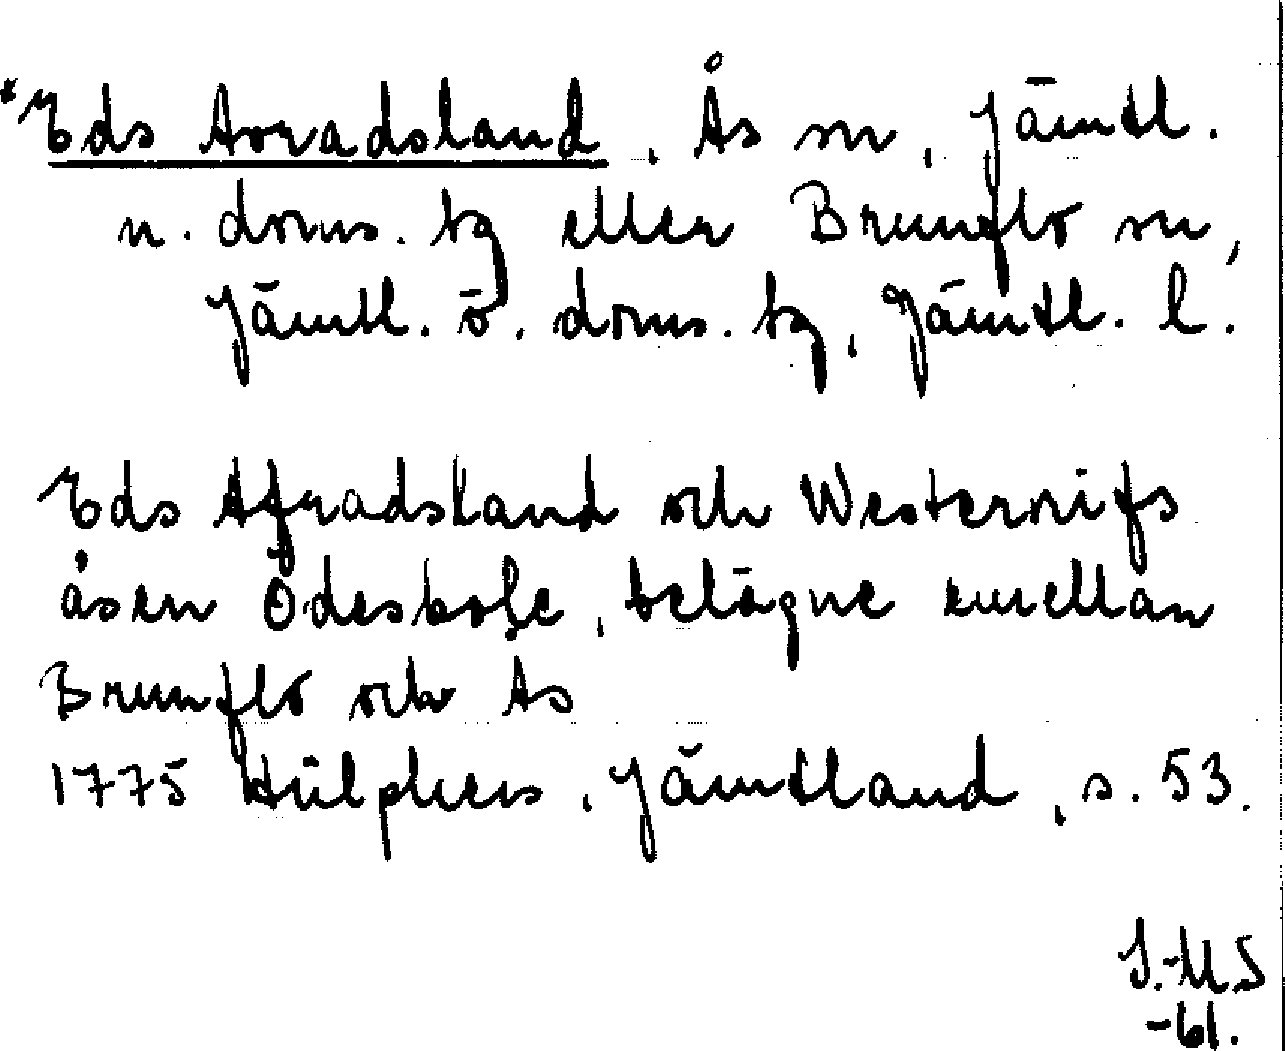 *Eds Avradsland, Ås sn, Jämtl.
n. doms. tg eller Brunflo sn,
Jämtl. ö. doms. tg, Jämtl. l.
Eds Afradsland och Westerrifs
åsen Ödesbole, belägne emellan
Brunflo och As
1775 Hülphers, Jämtland, s. 53.
I.-M.S
-61.